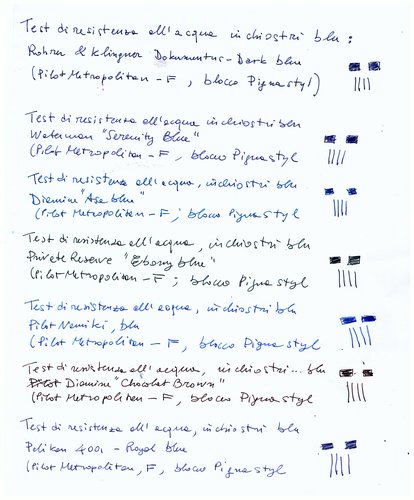 Test di resistenza all'acqua inchiostri blu:
Rohrer & Klingner Dokumentus - Dark blu
(Pilot Metropolitan - F, blocco Pignastyl)
Test di resistenza all'acqua inchiostri blu
Waterman "Serenity Blue"
(Pilot Metropolitan - F, blocco Pignastyl
Test di resistenza all'acqua, inchiostri blu
Diamine "Asa blue"
(Pilot Metropolitan - F, blocco Pignastyl
Test di resistenza all'acqua, inchiostri blu
Private Reserve "Ebony blue"
(Pilot Metropolitan - F; blocco Pignastyl
Test di resistenza all'acqua, inchiostri blu
Pilot Namiki, blu
(Pilot Metropolitan - F, blocco Pignastyl
Test di resistenza all'acqua, inchiostri... blu
Pilot Diamine "Chocolat Brown"
(Pilot Metropolitan - F, blocco Pignastyl
Test di resistenza all'acqua, inchiostri blu
Pelikan 4001 - Royal blue
(Pilot Metropolitan, F, blocco Pignastyl